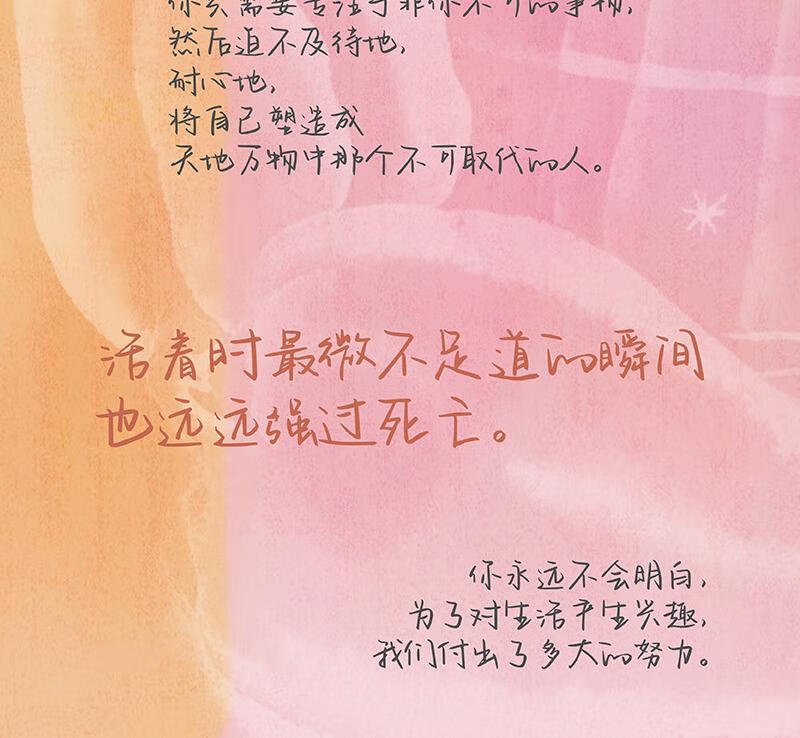 你只需要专注于非你不可的事物,
然后迫不及待地,
耐心地,
将自己塑造成
天地万物中那个不可取代的人。
活着时最微不足道的瞬间
也远远强过死亡。
你永远不会明白,
为了对生活产生兴趣,
我们付出了多大的努力。